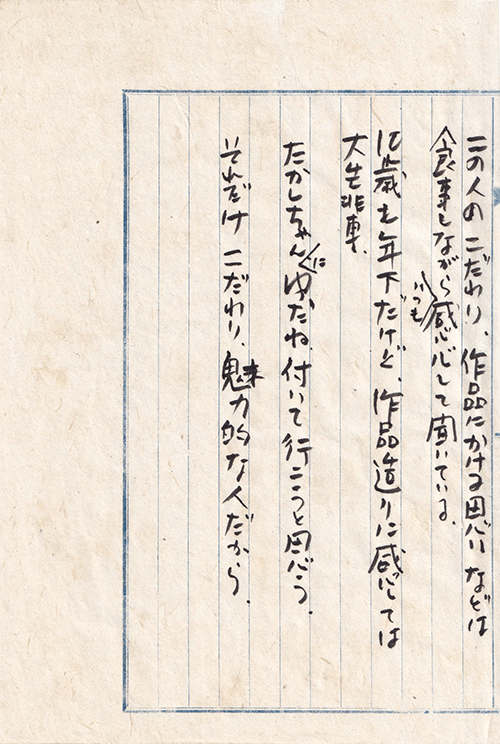 この人の こだわり、作品にかける思い などは
食事しながらいつも感心して聞いている。
12歳も年下だけど、作品造りに感しては
大先輩。
たかしちゃんにゆだね、付いて行こうと思う。
それだけ こだわり、魅力的な人だから。